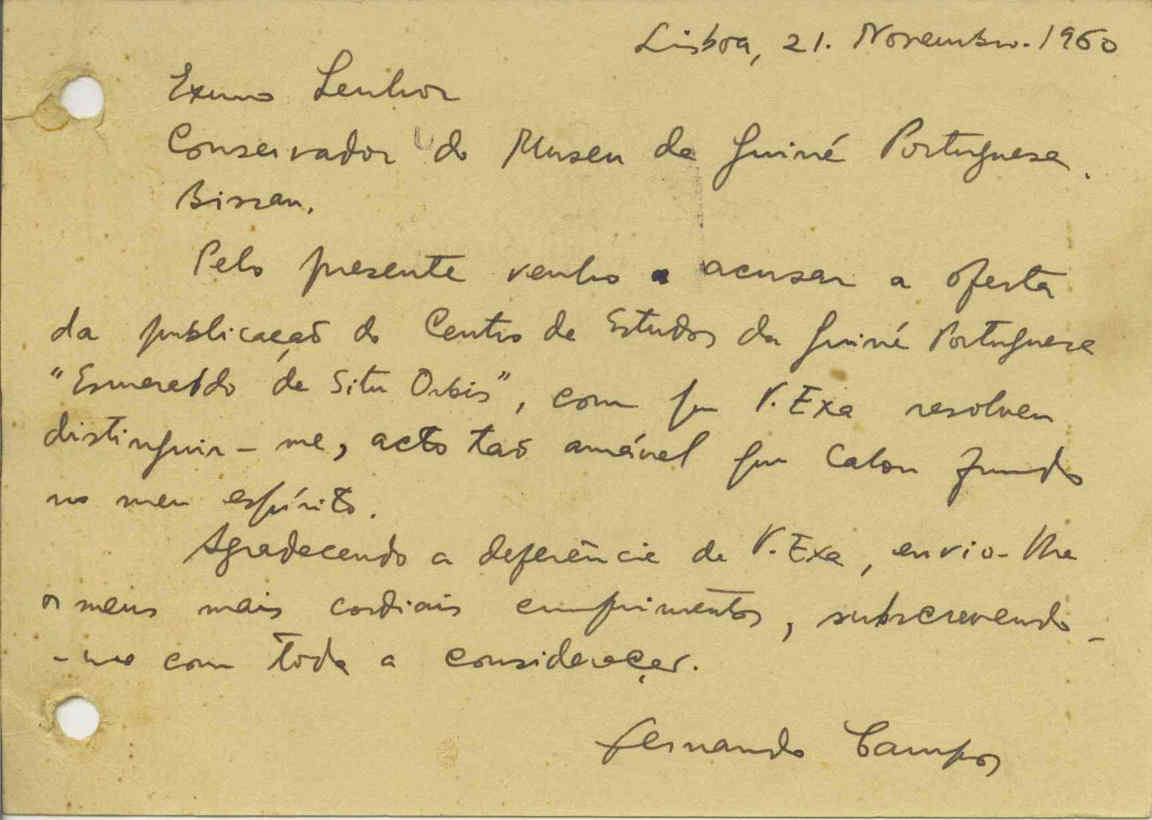 Lisboa, 21. Novembro. 1960
Exmo Senhor
Conservador do Museu da Guiné Portuguesa.
Bissau.
Pelo presente venho acusar a oferta
da publicação do Centro de Estudos da Guiné Portuguesa
"Esmeraldo de Situ Orbis", com que V. Exa resolveu
distinguir-me, acto tão amável que calou fundo
no meu espírito.
Agradecendo a deferência de V. Exa, envio-lhe
os meus mais cordiais cumprimentos, subscrevendo-
-me com toda a consideração.
Fernando Campos